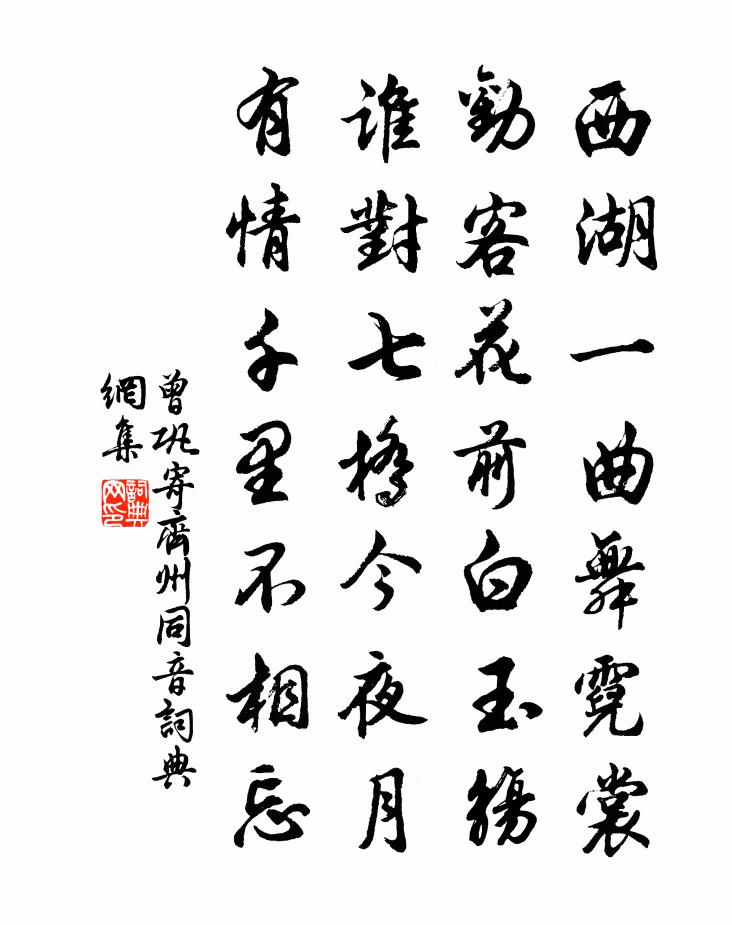 西湖一曲舞霓裳
勸客花前白玉觴
誰對七橋今夜月
有情千里不相忘
曾鞏寄齊州同音詞典
網集
詞典
网印